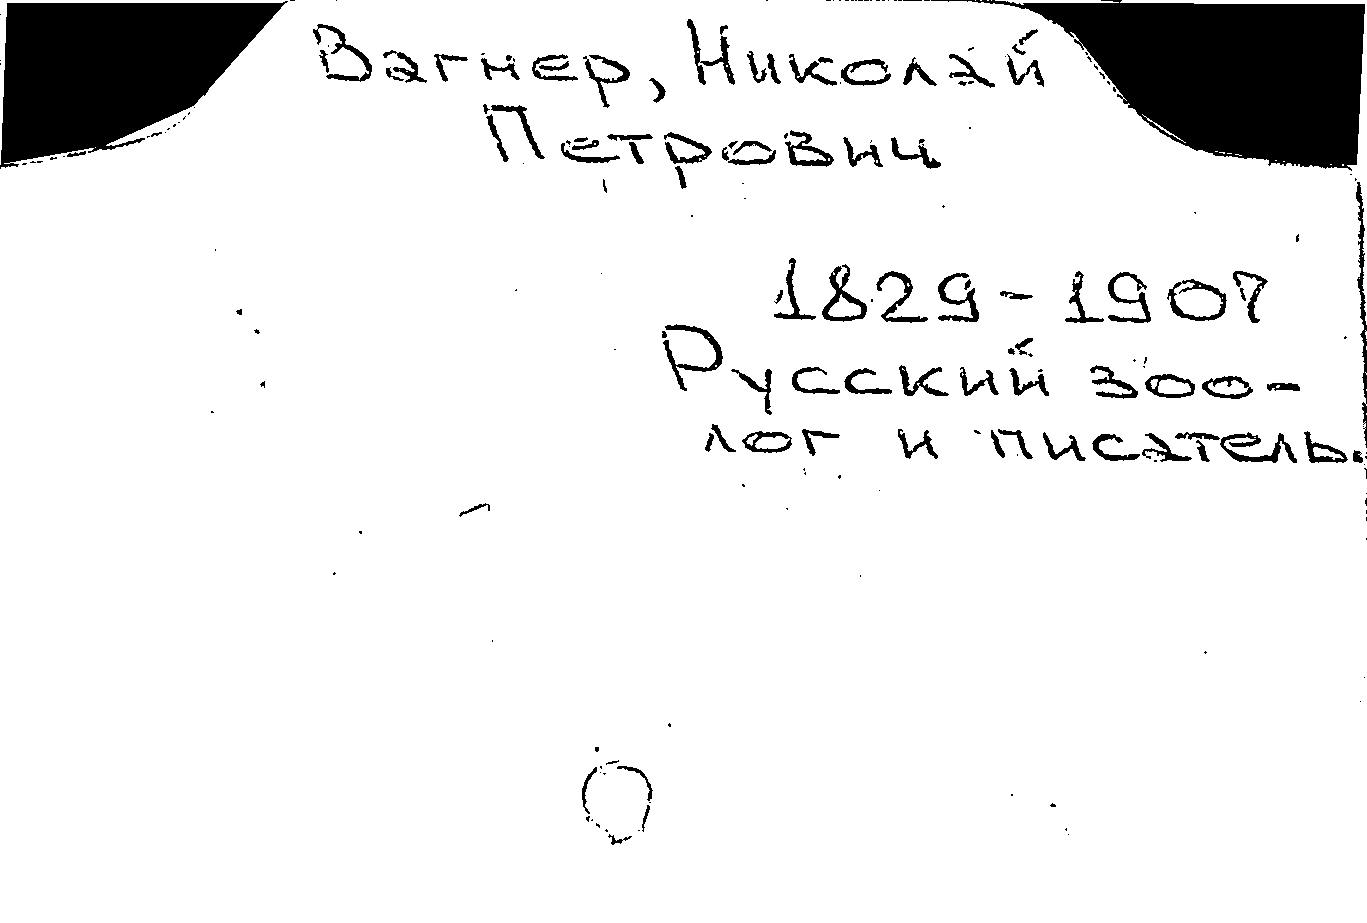 Вагнер, Николай
Петрович
1829-1907
Русский зоо-
лог и писатель.